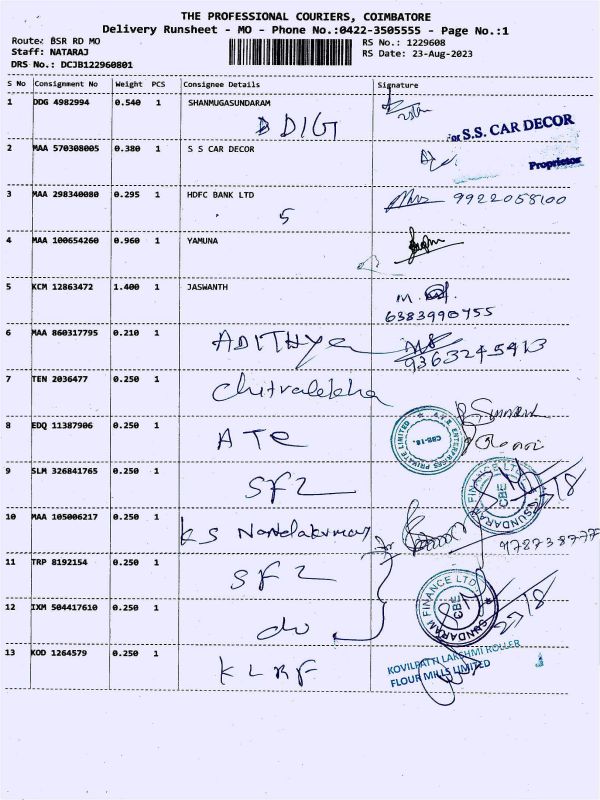 THE PROFESSIONAL COURIERS, COIMBATORE
Delivery Runsheet - MO - Phone No.:0422-3505555 - Page No.:1
Route: BSR RD MO
Staff: NATARAJ
DRS No.: DCJB122960801
RS No.: 1229608
RS Date: 23-Aug-2023
S No Consignment No Weight PCS Consignee Details Signature
1 DDG 4982994 0.540 1 SHANMUGASUNDARAM
DDIGT
For S.S. CAR DECOR
2 MAA 570308005 0.380 1 S S CAR DECOR
Proprietor
3 MAA 298340080 0.295 1 HDFC BANK LTD 9922058100
5
4 MAA 100654260 0.960 1 YAMUNA
5 KCM 12863472 1.400 1 JASWANTH
6383990755
6 MAA 860317795 0.210 1 ADITHYA
9363245913
7 TEN 2036477 0.250 1 Chitralekha
8 EDQ 11387906 0.250 1 ATE
A.T.E. ENTERPRISES PRIVATE LIMITED
CBE-18
9 SLM 326841765 0.250 1 SF2
SUNDARAM FINANCE LTD
CBE
10 MAA 105006217 0.250 1 KS Nandakumar
11 TRP 8192154 0.250 1 SF2
SUNDARAM FINANCE LTD
CBE
12 IXM 504417610 0.250 1 do
13 KOD 1264579 0.250 1 KLRF
KOVILPATTI LAKSHMI ROLLER
FLOUR MILLS LIMITED